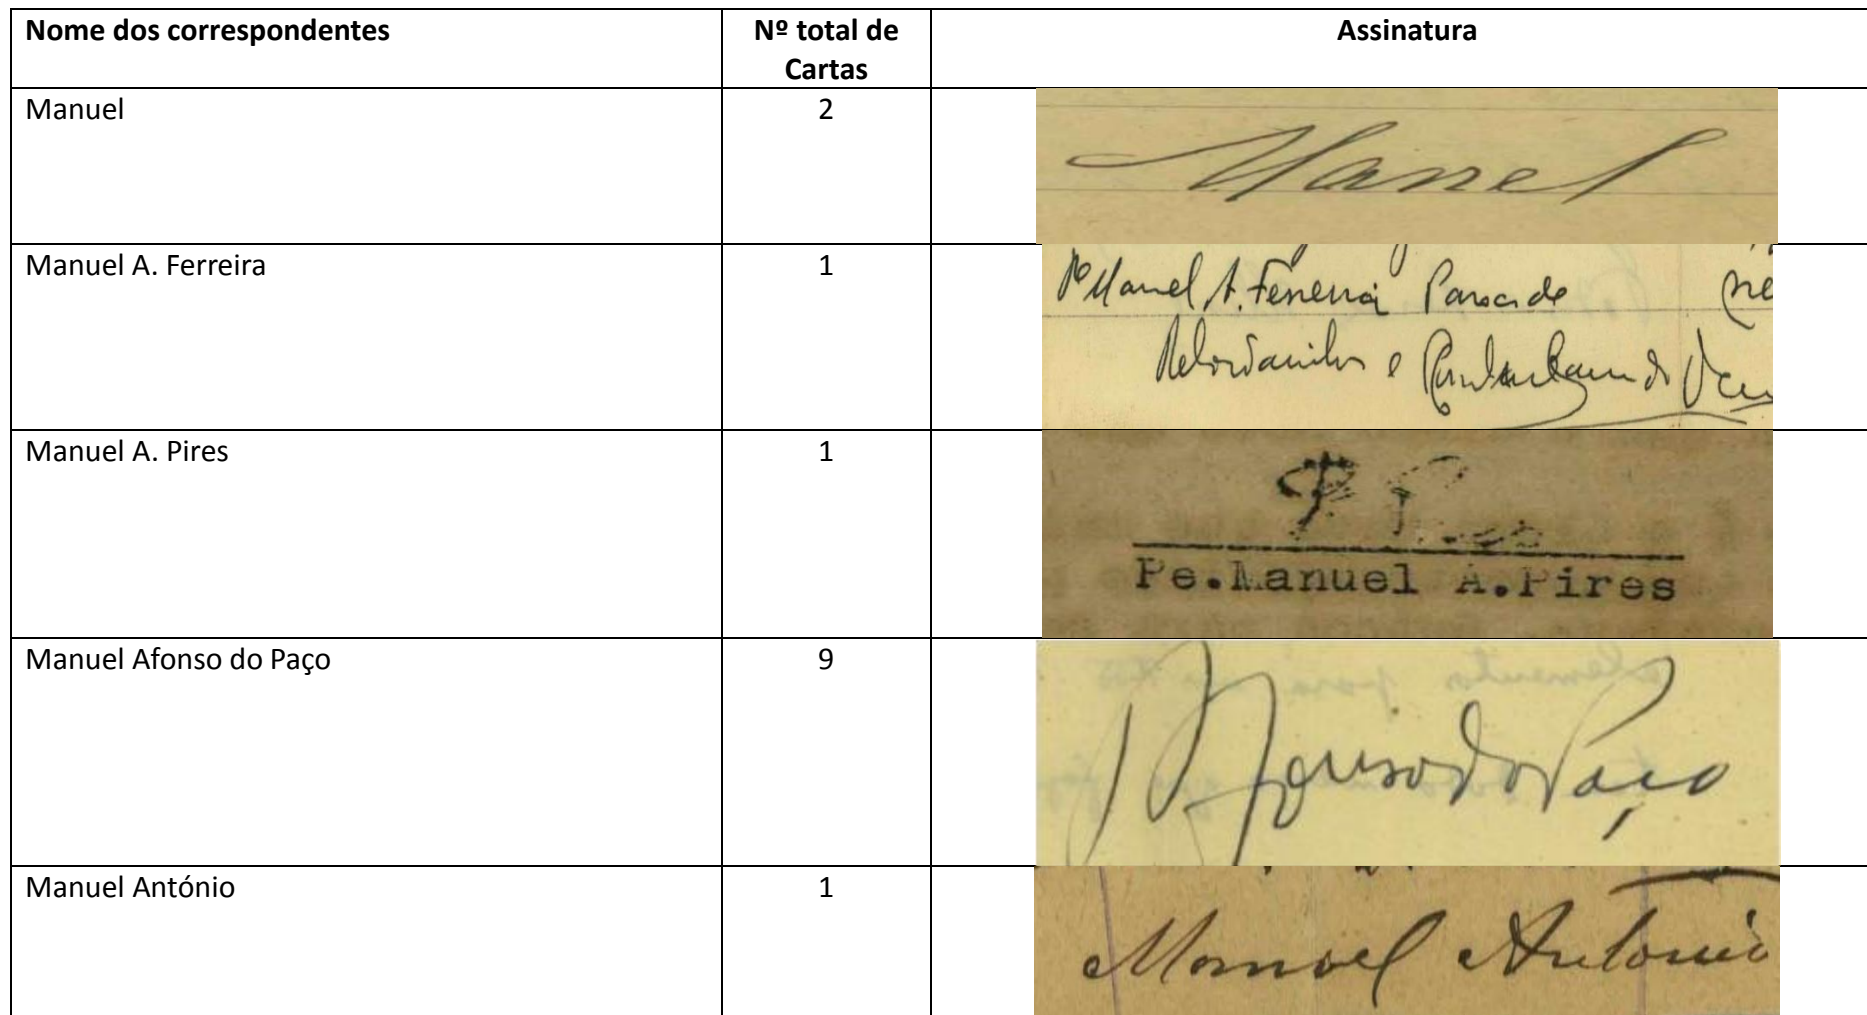 Nome dos correspondentes
Nº total de
Cartas
Assinatura
Manuel
2
Manel
Manuel A. Ferreira
1
Pe Manuel A. Ferreira
e
Manuel A. Pires
1
Pe.Manuel A.Pires
Manuel Afonso do Paço
9
Afonso do Paço
Manuel António
1
Manoel Antonio